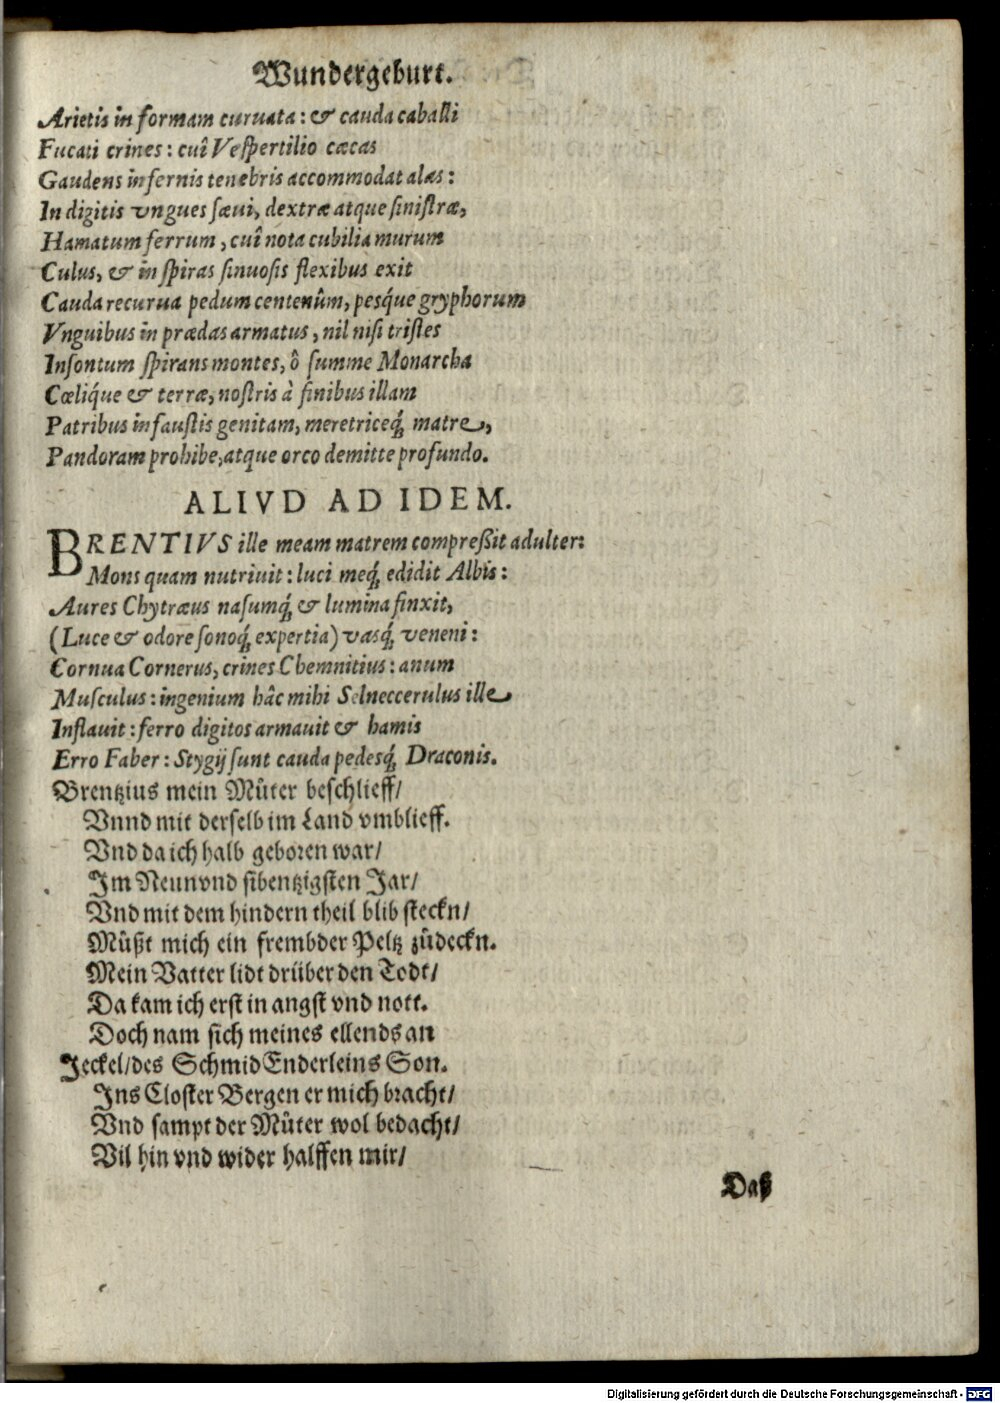 Wundergeburt.
Arietis in formam curuata: & cauda caballi
Fucati crines: cuî Vespertilio cæcas
Gaudens infernis tenebris accommodat alas:
In digitis vngues sæui, dextræ atque sinistræ,
Hamatum ferrum, cuî nota cubilia murum
Culus, & in spiras sinuosis flexibus exit
Cauda recurua pedum centenûm, pesq́ue gryphorum
Vnguibus in prædas armatus, nil nisi tristes
Insontum spirans montes, ô summe Monarcha
Cœliq́ue & terræ, nostris à finibus illam
Patribus infaustis genitam, meretriceq́; matre,
Pandoram prohibe, atque orco demitte profundo.
ALIVD AD IDEM.
BRENTIVS ille meam matrem compreßit adulter:
Mons quam nutriuit: luci meq́; edidit Albis:
Aures Chytræus nasumq́; & lumina finxit,
(Luce & odore sonoq́; expertia) vasq́; veneni:
Cornua Cornerus, crines Chemnitius: anum
Musculus: ingenium hâc mihi Selneccerulus ille
Inflauit: ferro digitos armauit & hamis
Erro Faber: Stygij sunt cauda pedesq́; Draconis.
Brentzius mein Můter beschlieff/
Vnnd mit derselb im Land vmblieff.
Vnd da ich halb geboren war/
Im Neun vnd sibentzigsten Jar/
Vnd mit dem hindern theil blib steckn/
Můßt mich ein frembder Peltz zůdeckn.
Mein Vatter lidt drüber den Todt/
Da kam ich erst in angst vnd nott.
Doch nam sich meines ellends an
Jeckel/ des Schmid Enderleins Son.
Ins Closter Bergen er mich bracht/
Vnd sampt der Můter wol bedacht/
Vil hin vnd wider halffen mir/
Daß
Digitalisierung gefördert durch die Deutsche Forschungsgemeinschaft - DFG